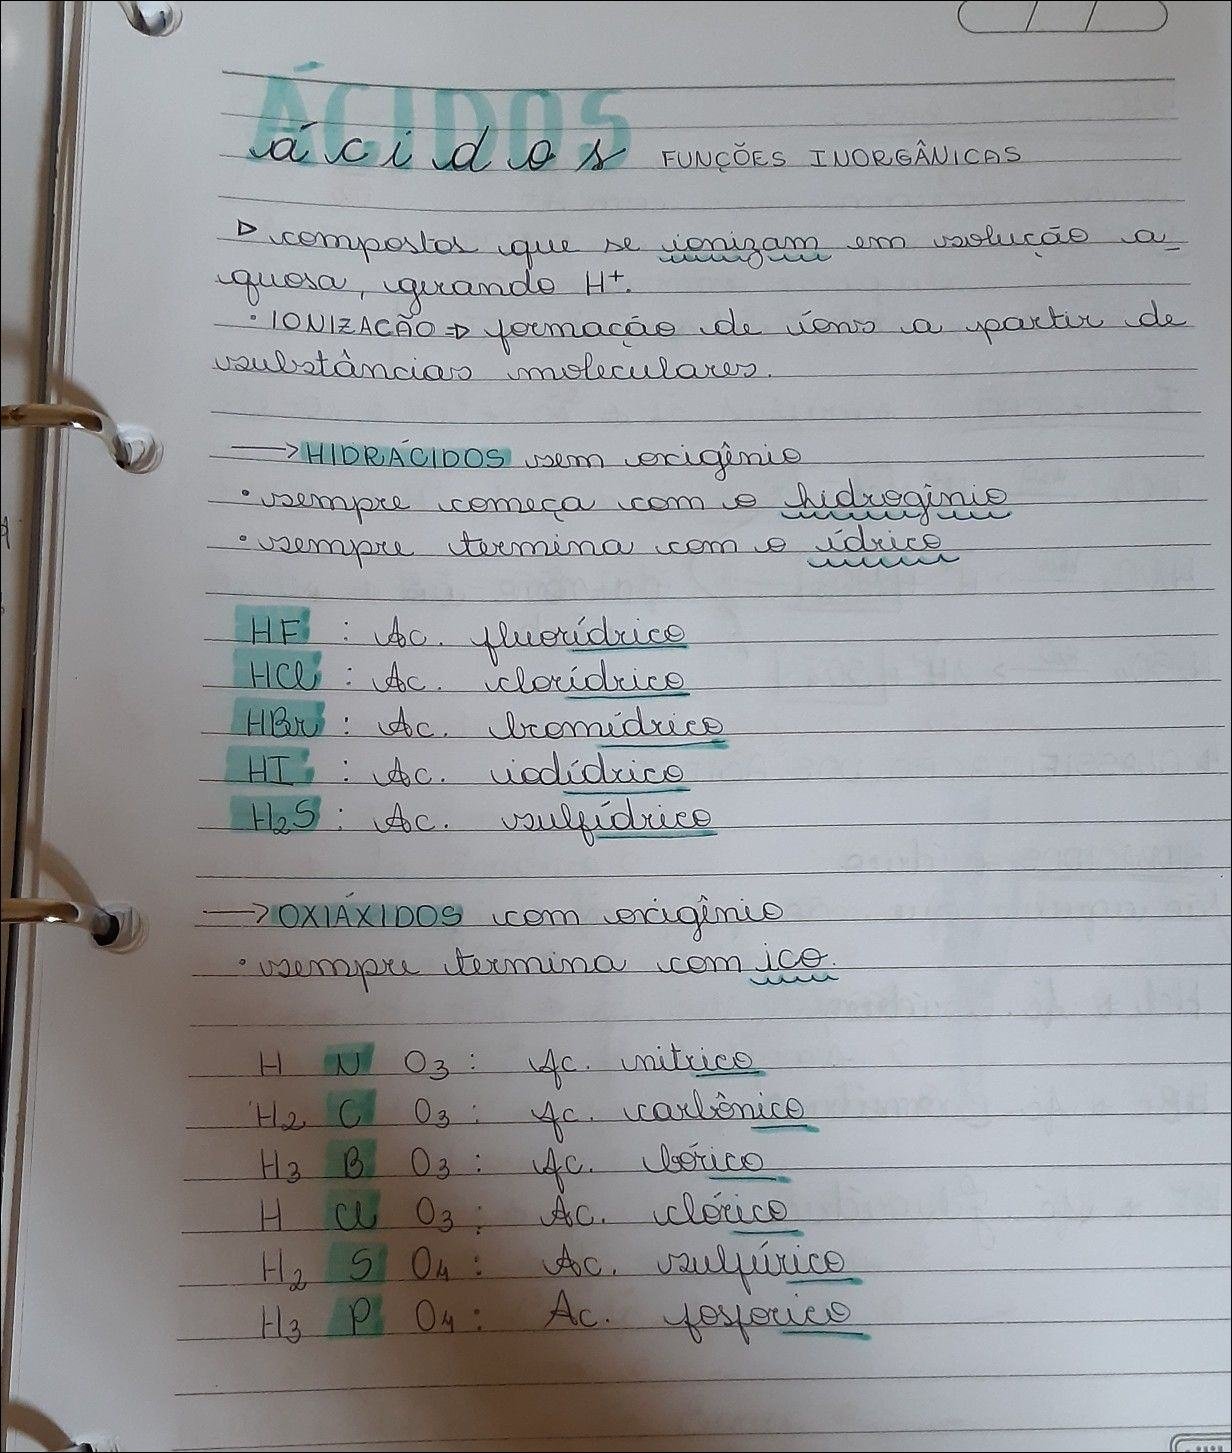 ÁCIDOS
ácidos FUNÇÕES INORGÂNICAS
compostos que se ionizam em solução a-
quosa, gerando H+.
• IONIZAÇÃO => formação de íons a partir de
substâncias moleculares.
→ HIDRÁCIDOS sem oxigênio
• sempre começa com o hidrogênio
• sempre termina com o ídrico
HF : Ac. fluorídrico
HCl : Ac. clorídrico
HBr : Ac. bromídrico
HI : Ac. iodídrico
H2S : Ac. sulfídrico
→ OXIÁXIDOS com oxigênio
• sempre termina com ico.
H N O3 : Ac. nitrico
H2 C O3 : Ac. carbônico
H3 B O3 : Ac. bórico
H Cl O3 : Ac. clórico
H2 S O4 : Ac. sulfúrico
H3 P O4 : Ac. fosforico